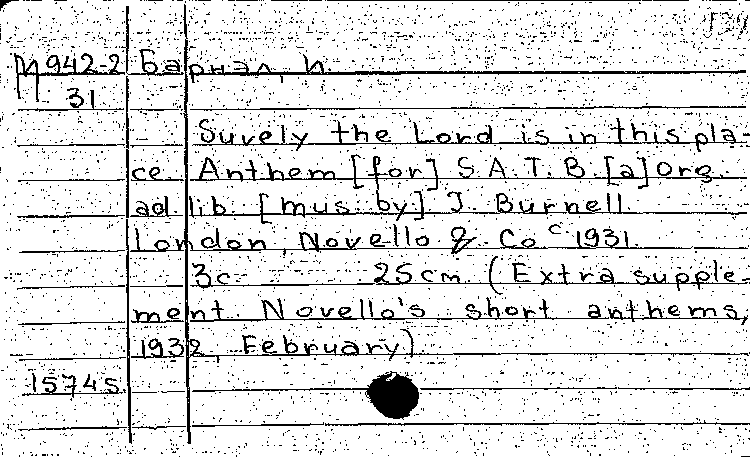 М942-2 Барнал, И.
31
Surely the Lord is in this pla-
ce. Anthem [for] S.A.T.B. [a] Org.
ad. lib. [mus. by] J. Burnell.
London, Novello & Co c 1931.
3c 25cm (Extra supple-
ment Novello's short anthems,
1932, February)
15745